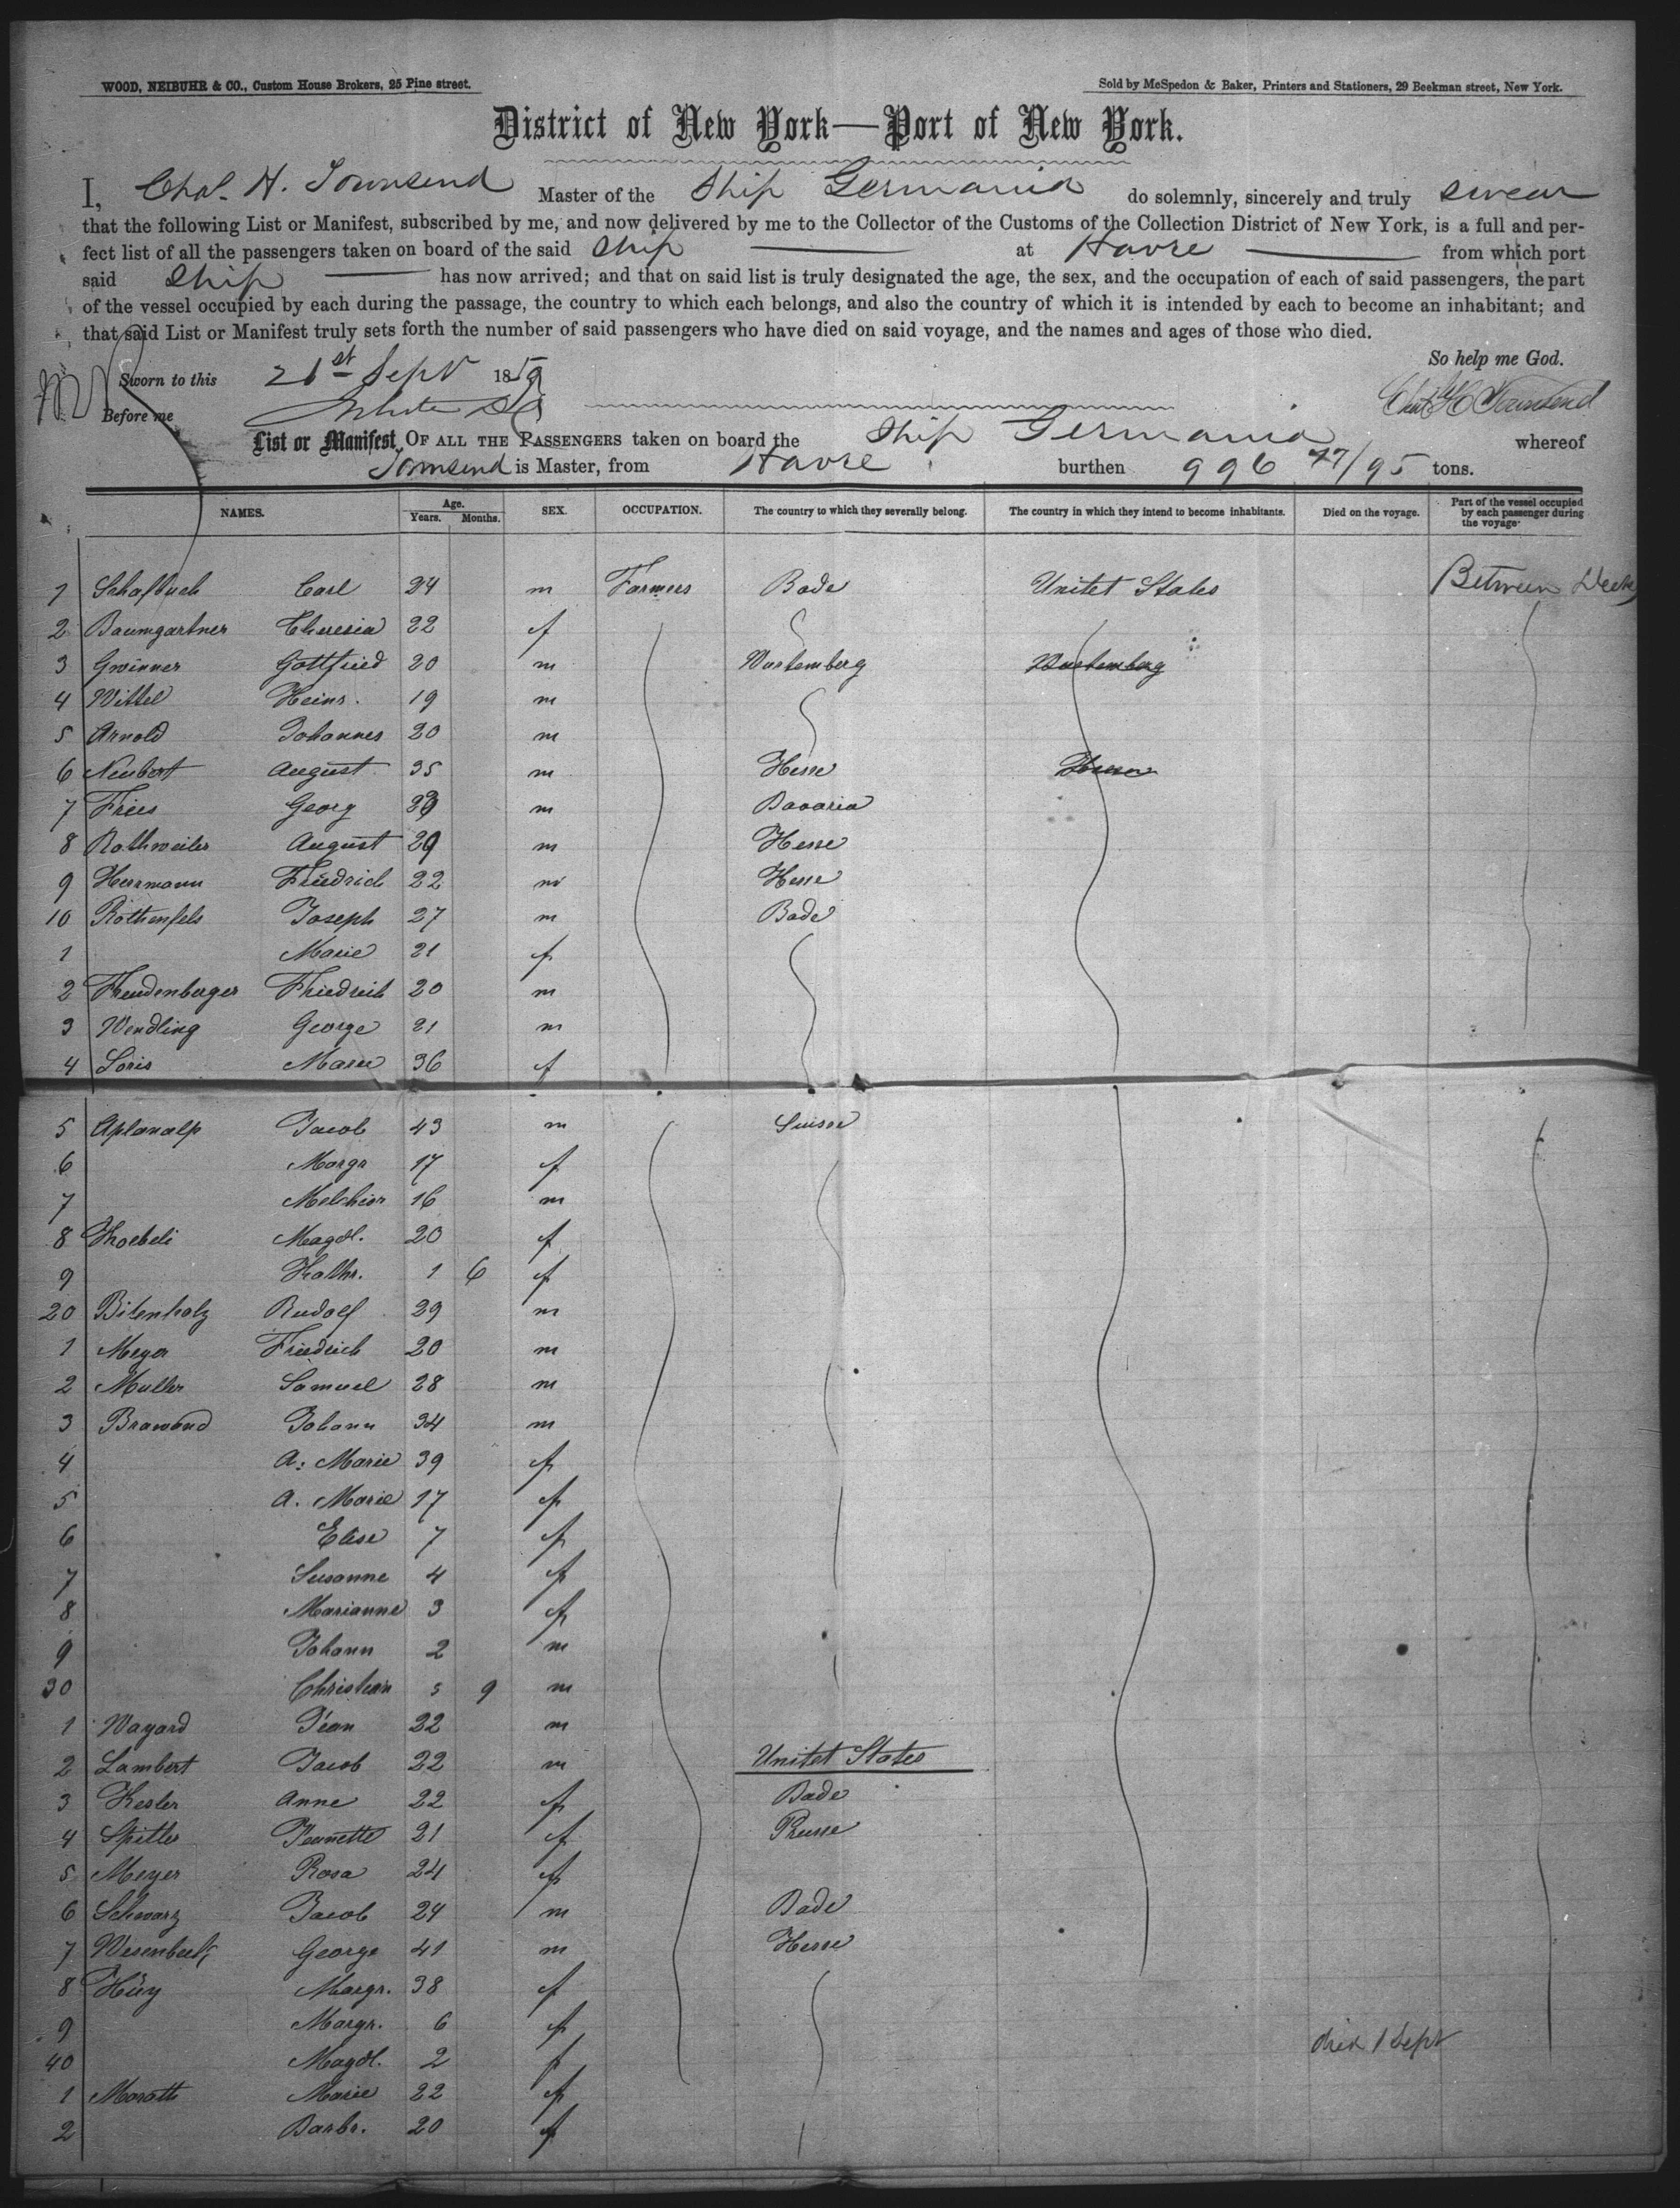 WOOD, NEIBUHR & CO., Custom House Brokers, 25 Pine street.
Sold by McSpedon & Baker, Printers and Stationers, 29 Beekman street, New York.
District of New York—Port of New York.
I, Chas. H. Townsend Master of the Ship Germania do solemnly, sincerely and truly swear
that the following List or Manifest, subscribed by me, and now delivered by me to the Collector of the Customs of the Collection District of New York, is a full and per-
fect list of all the passengers taken on board of the said Ship at Havre from which port
said Ship has now arrived; and that on said list is truly designated the age, the sex, and the occupation of each of said passengers, the part
of the vessel occupied by each during the passage, the country to which each belongs, and also the country of which it is intended by each to become an inhabitant; and
that said List or Manifest truly sets forth the number of said passengers who have died on said voyage, and the names and ages of those who died.
So help me God.
Sworn to this 21st Sept 1859
Chas H Townsend
Before me
List or Manifest OF ALL THE PASSENGERS taken on board the Ship Germania whereof
Townsend is Master, from Havre burthen 996 77/95 tons.
NAMES. Age. Years. Months. SEX. OCCUPATION. The country to which they severally belong. The country in which they intend to become inhabitants. Died on the voyage. Part of the vessel occupied by each passenger during the voyage
1 Schafbuch Carl 24 m Farmers Bade Unitet States Between Decks
2 Baumgartner Theresia 22 f
3 Gwinner Gottfried 20 m Wurtemberg Wurtemberg
4 Wittel Heinr. 19 m
5 Arnold Johannes 20 m
6 Neubert August 35 m Hesse
7 Fries Georg m Bavaria
8 Rothweiler August 29 m Hesse
9 Herrmann Friedrich 22 m Hesse
10 Rothenfels Joseph 27 m Bade
1 Marie 21 f
2 Freudenberger Friedrich 20 m
3 Wendling George 21 m
4 Loris Marie 36 f
5 Aplanalp Jacob 43 m Suisse
6 Margr 17 f
7 Melchior 16 m
8 Magdl. 20 f
9 Kathr. 1 6 f
20 Bitenholz Rudolf 29 m
1 Meyer Friedrich 20 m
2 Muller Samuel 28 m
3 Brawand Johann 34 m
4 A. Marie 39 f
5 A. Marie 17 f
6 Elise 7 f
7 Susanne 4 f
8 Marianne 3 f
9 Johann 2 m
30 Christian 9 m
1 Wayard Jean 22 m
2 Lambert Jacob 22 m Unitet States
3 Kesler Anne 22 f Bade
4 Spitler Jeanette 21 f Prusse
5 Meyer Rosa 24 f
6 Schwarz Jacob 24 m Bade
7 Wesenbeck George 41 m Hesse
8 Hüy Margr. 38 f
9 Margr. 6 f
40 Magdl. 2 f died 1 Sept
1 Maroth Marie 22 f
2 Barbr. 20 f